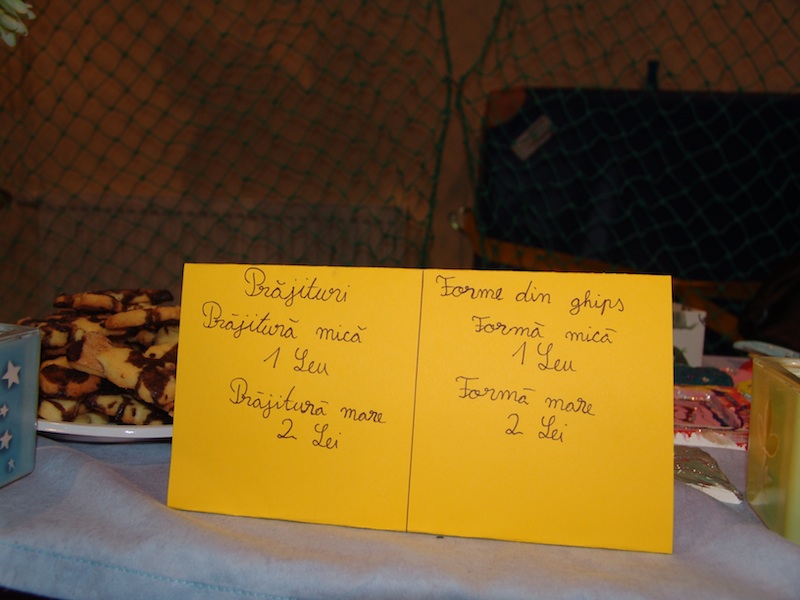 Prăjituri
Prăjitură mică
1 Leu
Prăjitură mare
2 Lei
Forme din ghips
Formă mică
1 Leu
Formă mare
2 Lei